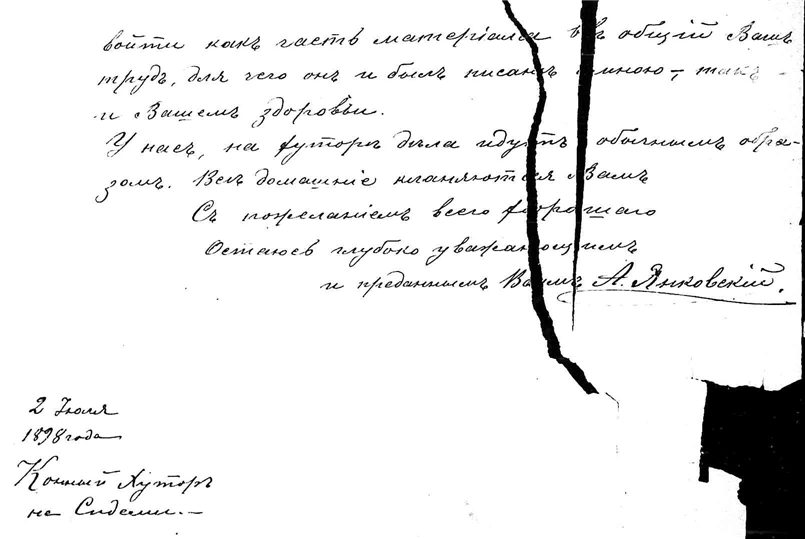 войти какъ часть матеріала въ общій Вашъ
трудъ, для чего онъ и былъ писанъ мною, – такъ –
и Вашемъ здоровьи.
У насъ, на хуторѣ дѣла идутъ обычнымъ обра-
зомъ. Всѣ домашніе кланяются Вамъ
Съ пожеланіемъ всего хорошаго
Остаюсь глубоко уважающимъ
и преданнымъ Вамъ А. Янковскій.
2 Іюля
1898 года
Конный Хуторъ
на Сидеми. –